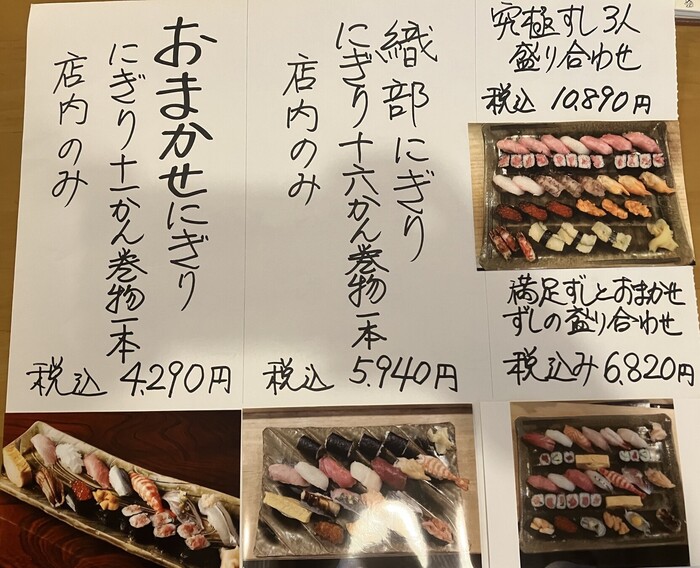 おまかせにぎり
にぎり十一かん巻物一本
店内のみ
税込 4,290円
織部にぎり
にぎり十六かん巻物一本
店内のみ
税込 5,940円
究極ずし3人
盛り合わせ
税込 10,890円
満足ずしとおまかせ
ずしの盛り合わせ
税込み6,820円